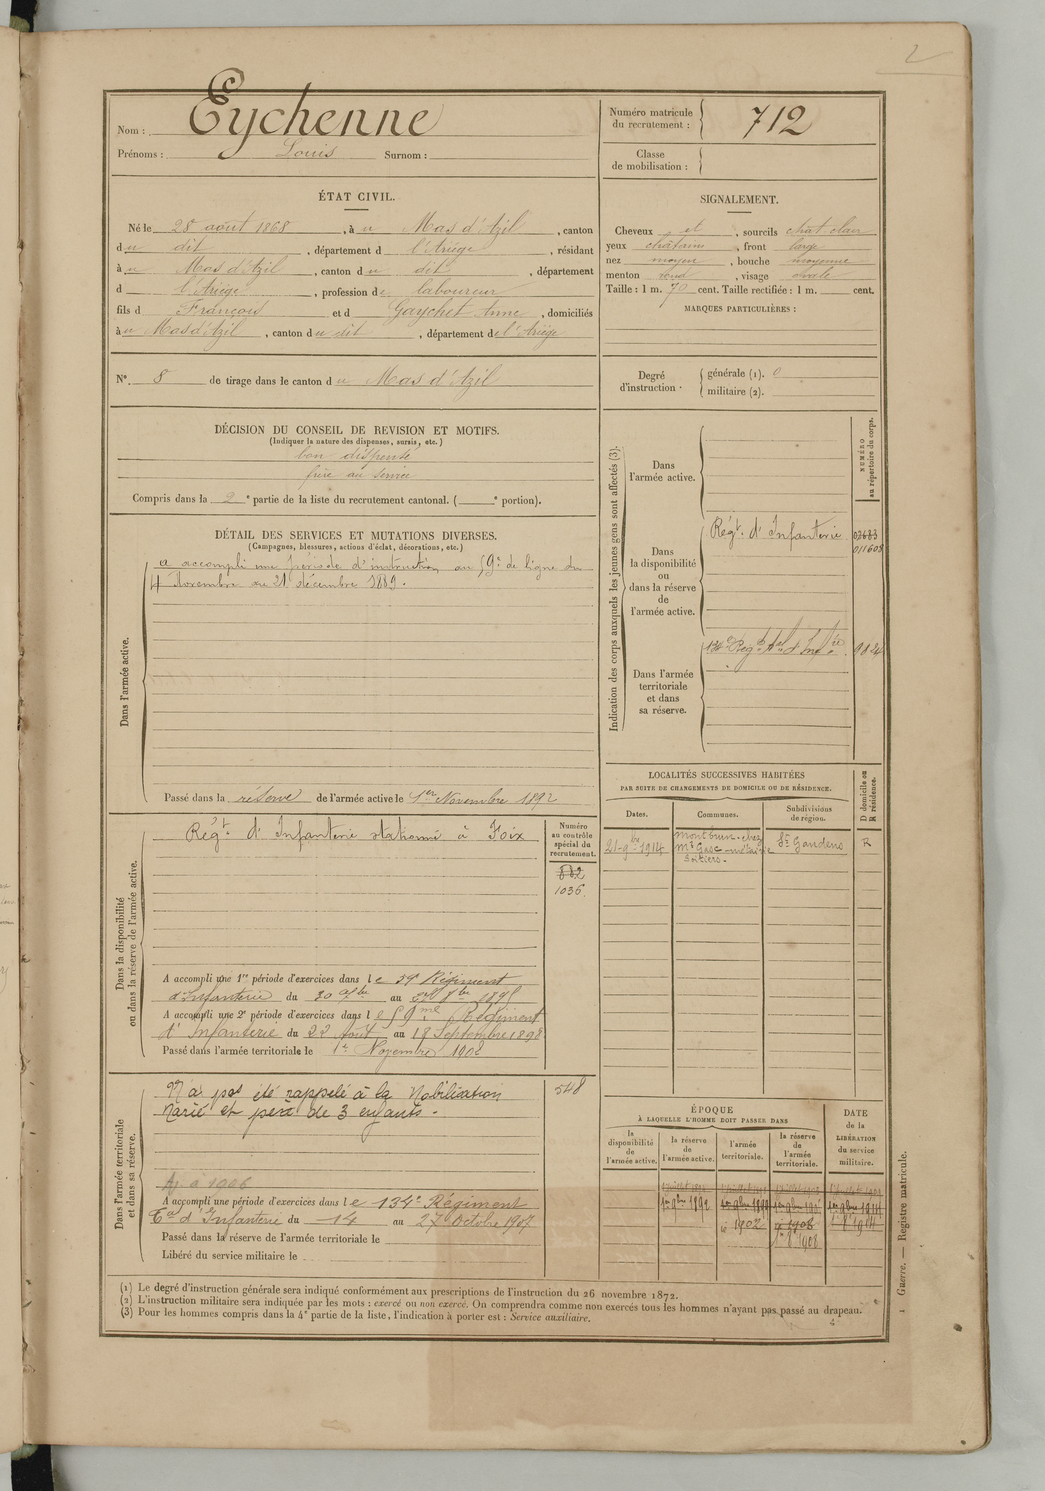 2
Nom : Eychenne
Prénoms : Louis Surnom :
Numéro matricule du recrutement : 712
Classe de mobilisation :
ÉTAT CIVIL.
Né le 28 août 1868, à u Mas d'Azil, canton
du dit, département d l'Ariège, résidant
à u Mas d'Azil, canton du dit, département
d l'Ariège, profession de laboureur
fils d François et d Gaychet Anne, domiciliés
à u Mas d'Azil, canton du dit, département de l'Ariège
N° 8 de tirage dans le canton du Mas d'Azil
SIGNALEMENT.
Cheveux et, sourcils chât clair
yeux châtains, front large
nez moyen, bouche moyenne
menton rond, visage ovale
Taille : 1 m. 70 cent. Taille rectifiée : 1 m. cent.
MARQUES PARTICULIÈRES :
Degré d'instruction. générale (1). 0
militaire (2).
DÉCISION DU CONSEIL DE REVISION ET MOTIFS.
(Indiquer la nature des dispenses, sursis, etc.)
bon dispensé
frère au service
Compris dans la 2e partie de la liste du recrutement cantonal. ( e portion).
DÉTAIL DES SERVICES ET MUTATIONS DIVERSES.
(Campagnes, blessures, actions d'éclat, décorations, etc.)
Dans l'armée active.
a accompli une période d'instruction au 59e de ligne du
4 Novembre au 21 décembre 1889.
Passé dans la réserve de l'armée active le 1er Novembre 1892
Indication des corps auxquels les jeunes gens sont affectés (3).
NUMÉRO au répertoire du corps.
Dans l'armée active.
Dans la disponibilité ou dans la réserve de l'armée active.
Régt. d'Infanterie 02683
011608
Dans l'armée territoriale et dans sa réserve.
134e Régt Tal d'Infie 9824
Dans la disponibilité ou dans la réserve de l'armée active.
Régt. d'Infanterie stationné à Foix
Numéro au contrôle spécial du recrutement.
882
1036
A accompli une 1re période d'exercices dans le 59e Régiment
d'Infanterie du 30 7bre au 8bre 1895
A accompli une 2e période d'exercices dans le 59me Régiment
d'Infanterie du 22 Août au 18 Septembre 1898
Passé dans l'armée territoriale le 1er Novembre 1902
LOCALITÉS SUCCESSIVES HABITÉES
PAR SUITE DE CHANGEMENTS DE DOMICILE OU DE RÉSIDENCE.
Dates. Communes. Subdivisions de région. D domicile ou R résidence.
21-9bre 1914 Montbrun-chez Mr Gasc-métairie St Gaudens R
Dans l'armée territoriale et dans sa réserve.
N'a pas été rappelé à la Mobilisation
Marié et père de 3 enfants.
548
Aj à 1906
A accompli une période d'exercices dans le 134e Régiment
Tal d'Infanterie du 14 au 27 Octobre 1907
Passé dans la réserve de l'armée territoriale le
Libéré du service militaire le
ÉPOQUE
À LAQUELLE L'HOMME DOIT PASSER DANS
la disponibilité de l'armée active.
la réserve de l'armée active.
l'armée territoriale.
la réserve de l'armée territoriale.
DATE de la LIBÉRATION du service militaire.
1er 9bre 1892
1902
1908
1914
(1) Le degré d'instruction générale sera indiqué conformément aux prescriptions de l'instruction du 26 novembre 1872.
(2) L'instruction militaire sera indiquée par les mots : exercé ou non exercé. On comprendra comme non exercés tous les hommes n'ayant pas passé au drapeau.
(3) Pour les hommes compris dans la 4e partie de la liste, l'indication à porter est : Service auxiliaire.
1 Guerre. — Registre matricule.